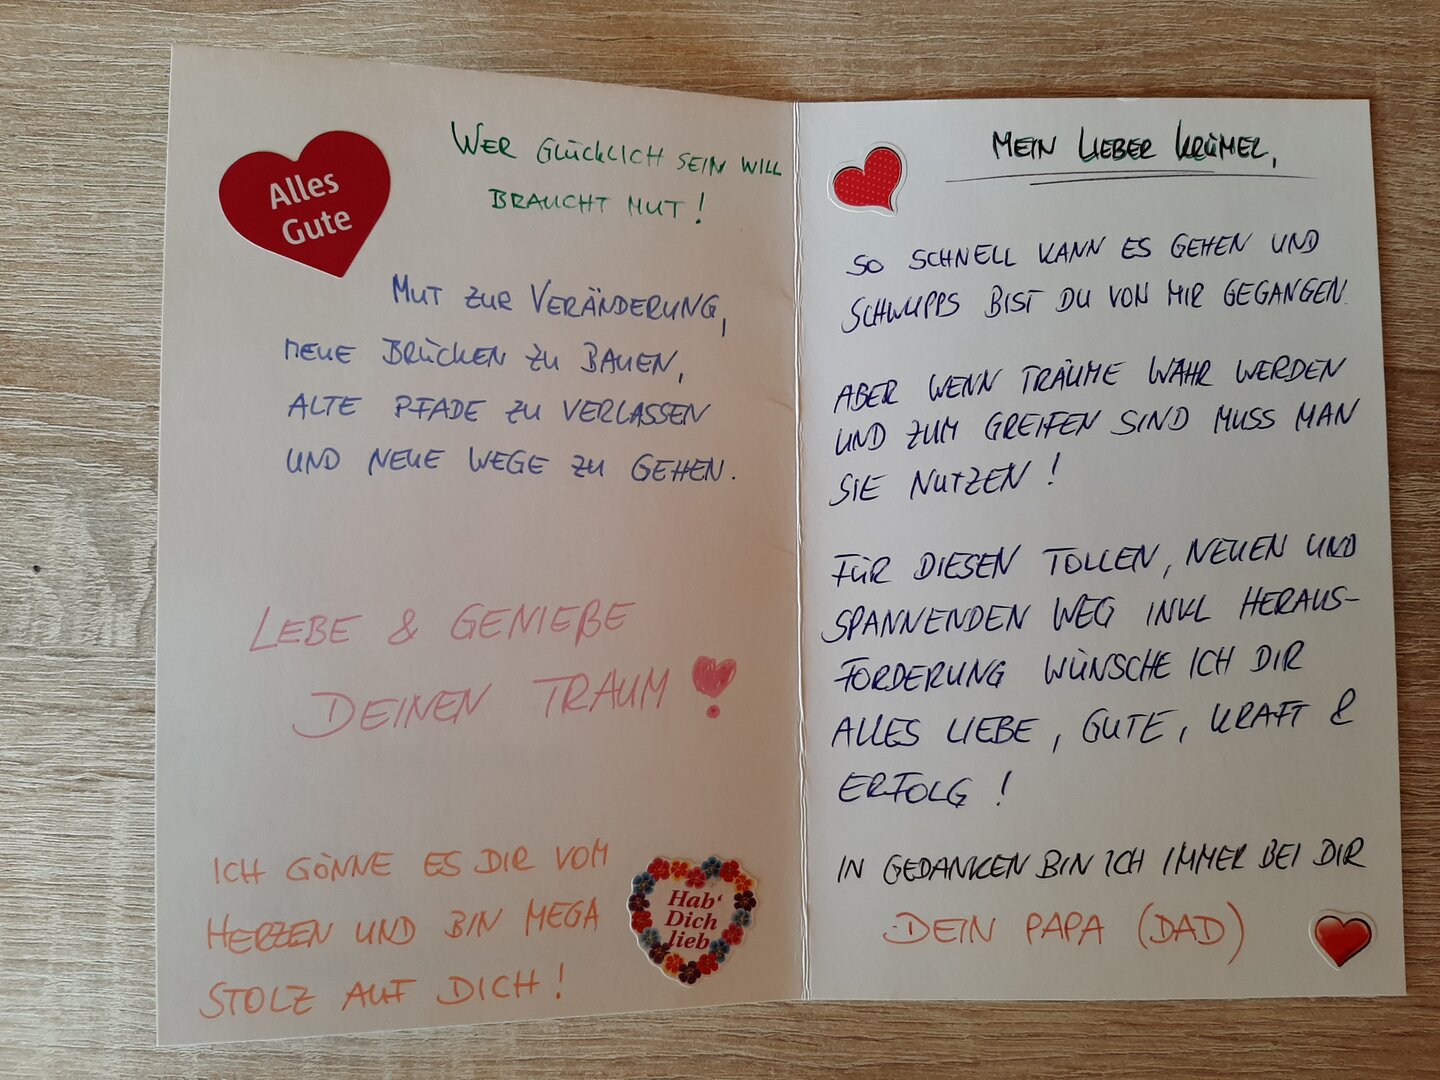 Alles
Gute
WER GLÜCKLICH SEIN WILL
BRAUCHT MUT!
MUT ZUR VERÄNDERUNG,
NEUE BRÜCKEN ZU BAUEN,
ALTE PFADE ZU VERLASSEN
UND NEUE WEGE ZU GEHEN.
LEBE & GENIEßE
DEINEN TRAUM!
ICH GÖNNE ES DIR VOM
HERZEN UND BIN MEGA
STOLZ AUF DICH!
Hab'
Dich
lieb
MEIN LIEBER KRÜMEL,
SO SCHNELL KANN ES GEHEN UND
SCHWUPPS BIST DU VON MIR GEGANGEN.
ABER WENN TRÄUME WAHR WERDEN
UND ZUM GREIFEN SIND MUSS MAN
SIE NUTZEN!
FÜR DIESEN TOLLEN, NEUEN UND
SPANNENDEN WEG INKL HERAUS-
FORDERUNG WÜNSCHE ICH DIR
ALLES LIEBE, GUTE, KRAFT &
ERFOLG!
IN GEDANKEN BIN ICH IMMER BEI DIR
DEIN PAPA (DAD)